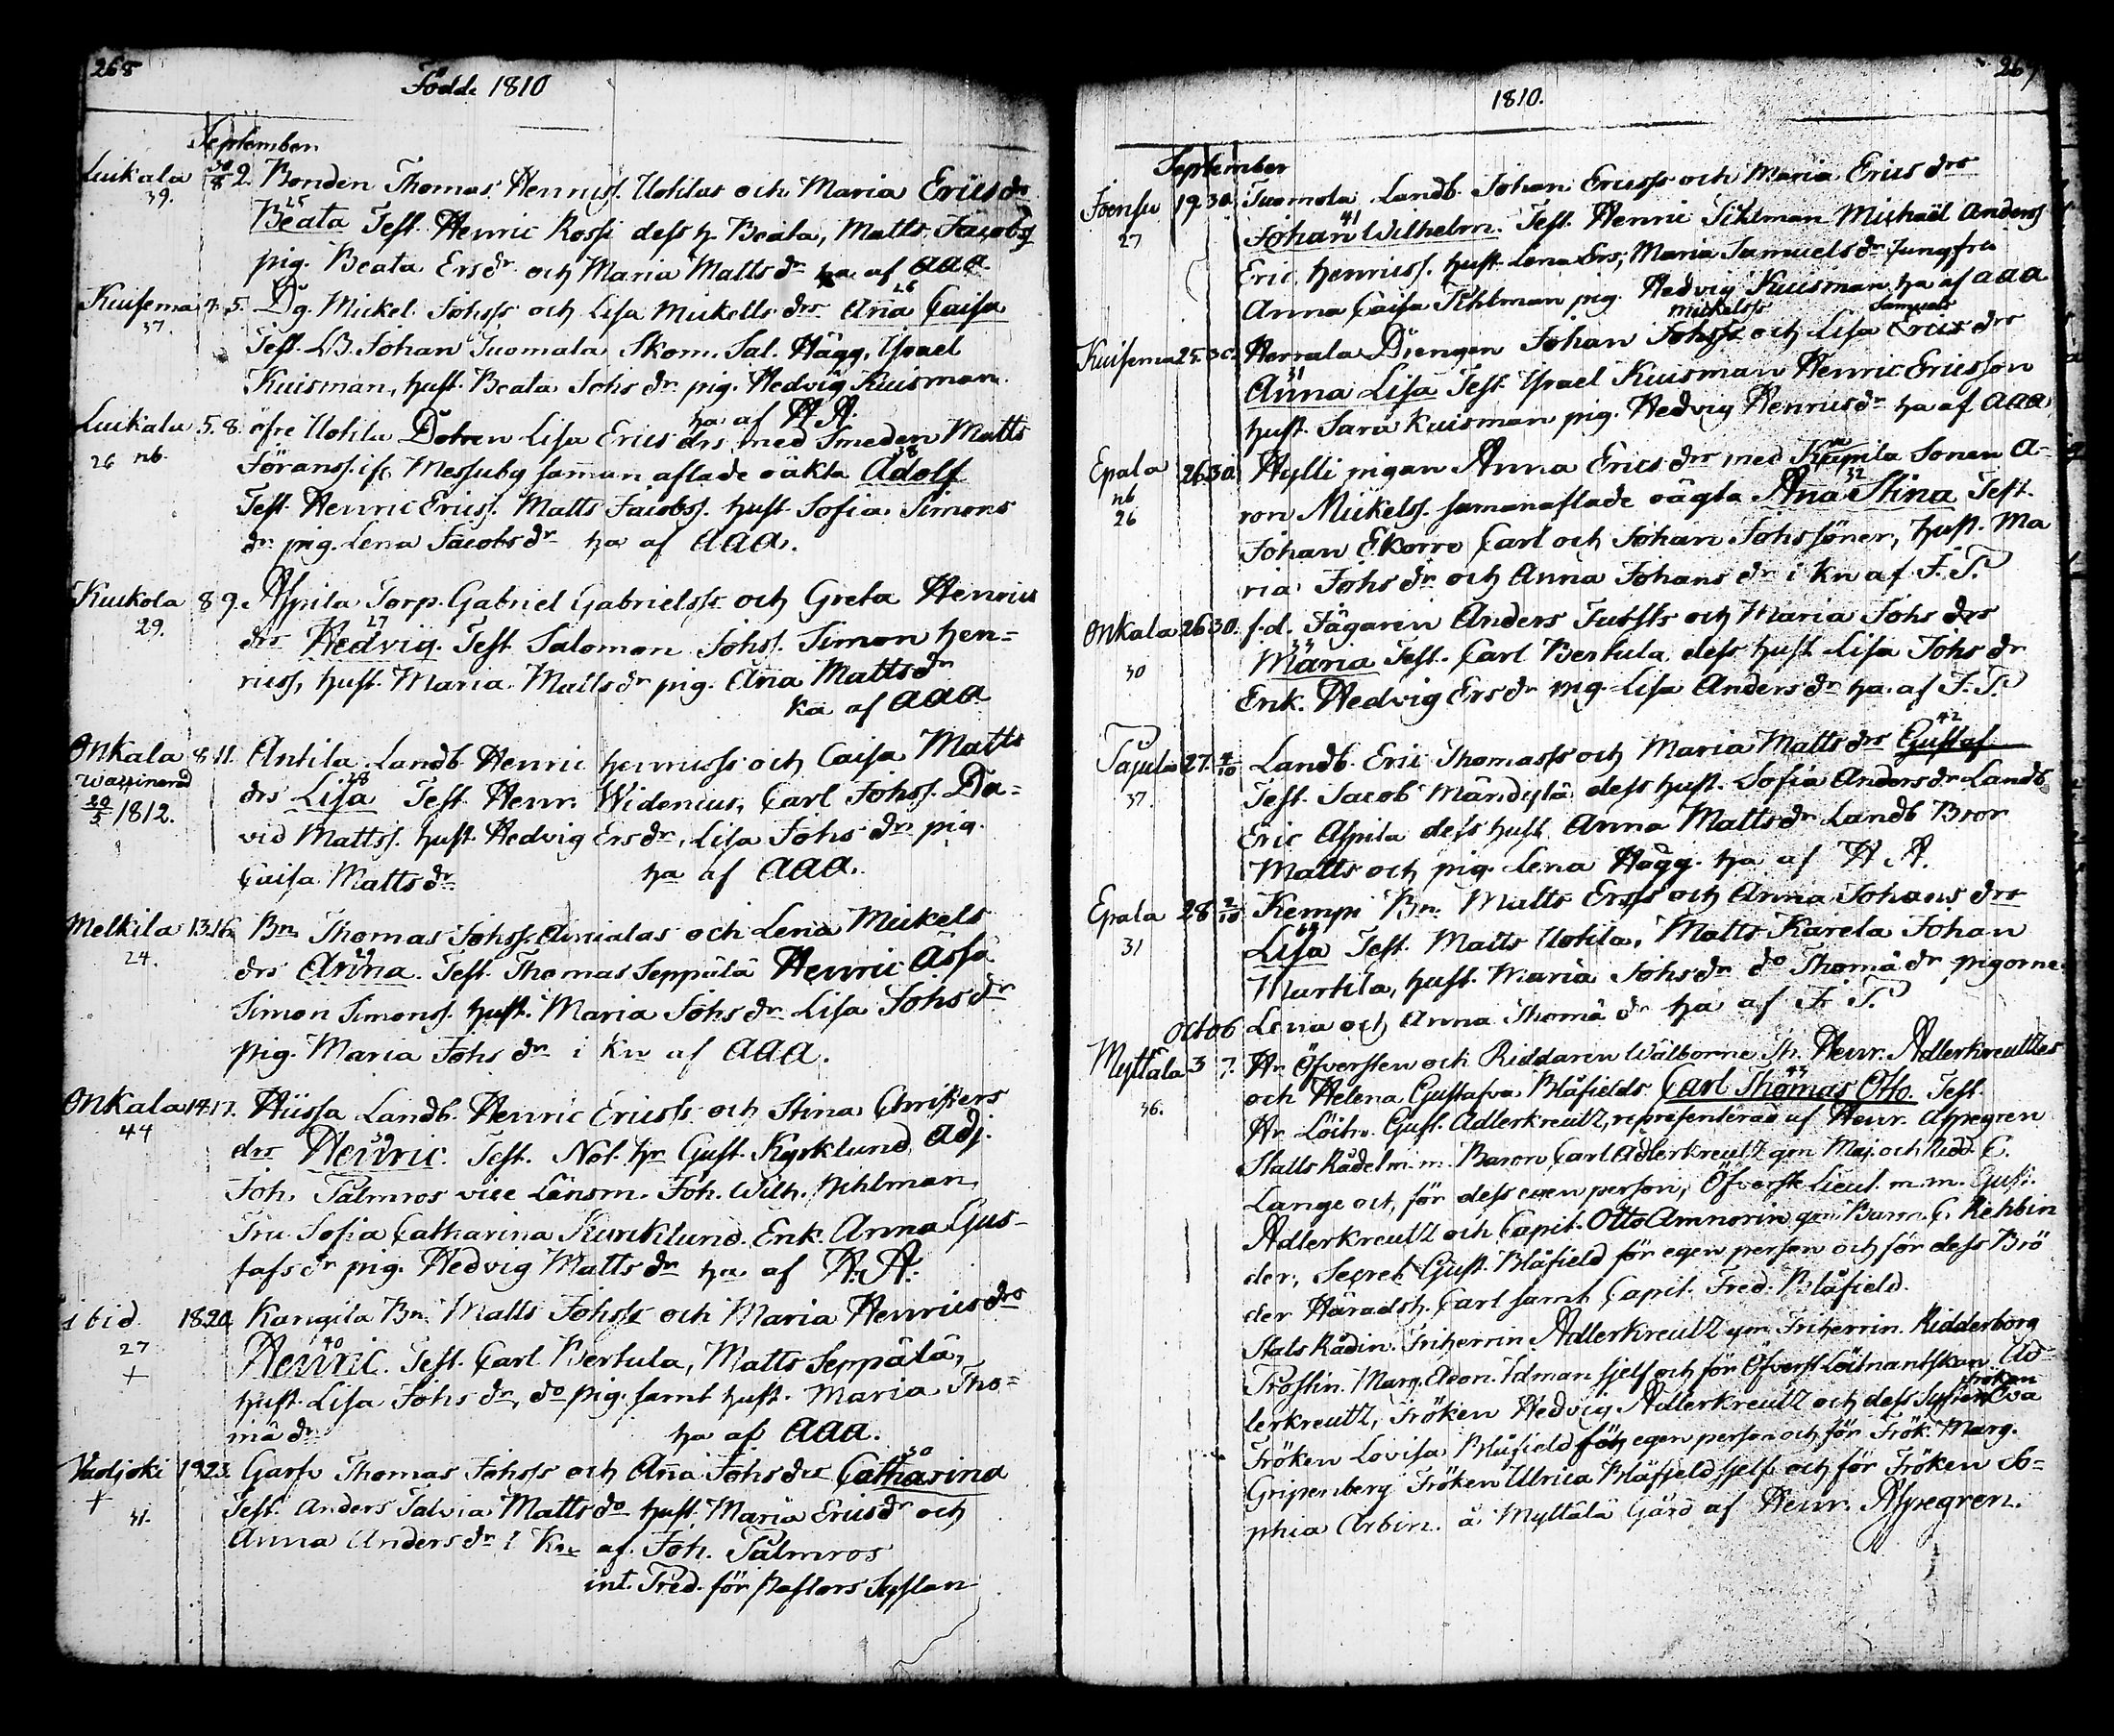 268
Födde 1810
September
Luikala 30/8 2. Bonden Thomas Henriss. Uotilas och Maria Ericsdr
39. 25
Beata Test. Henric Rossi dess h. Beata, Matts Jacobss
pig. Beata Ersdr och Maria Mattsdr ha af AAA.
Kuisema 2. 5. Dg. Mickel Johss och Lisa Mickells drs Ana Caisa
37. 26
Test. B. Johan Tuomala Skom. Sal. Hägg, Israel
Kuisman, hust. Beata Johs dr pig. Hedvig Kuisman
ha af A A.
Luikala 5. 8. öfre Uotila Dotren Lisa Erics drs med Smeden Matts
26 nb. 38
Jöranss. ifr. Messuby samman aflade oäkta Adolf
Test Henric Ericss. Matts Jacobss. hust Sofia Simons
dr pig. Lena Jacobsdr ha af AAA.
Kuikola 8 9. Aspila Torp. Gabriel Gabrielss och Greta Henrics
29. 27
drs Hedvig. Test Salomon Johss. Simon Hen=
ricss, hust. Maria Mattsdr pig. Ana Mattsdr
ha af AAA
Onkala 8. 11. Antila Landb. Henric Henricss och Caisa Matts
Waccinerad
20/5 1812.
28
drs Lisa Test Henr. Widenius, Carl Johss. Da=
vid Mattss. hust Hedvig Ersdr, Lisa Johs dr pig.
Caisa Mattsdr ha af AAA.
Melkila 13. 16. Bn Thomas Johss. Anialas och Lena Mickels
24.
drs Anna. Test. Thomas Seppälä Henric Asso
Simon Simonss. hust. Maria Johsdr Lisa Johsdr
pig. Maria Johs dr i Kn af AAA.
Onkala 14. 17. Hüssa Landb. Henric Ericss och Stina Christers
44 39
drs Henric. Test. Not. hr Gust. Kyrklund, Adj.
Joh. Palmros vice Länsm. Joh. Wilh. Pihlman
Fru Sofia Catharina Kurcklund. Enk. Anna Gus=
tafsdr pig. Hedvig Mattsdr ha af A. A.
ibid 18. 20. Kangila Bn. Matts Johss och Maria Henricsdrs
27
+
40
Henric. Test. Carl Bertula, Matts Seppälä,
hust Lisa Johs dr, do pig. samt hust. Maria Tho=
mä dr ha af AAA.
19. 23. Garfv Thomas Johss och Ana Johs drs Catharina
+
41.
30
Test. Anders Talvia Matts do hust. Maria Ericsdr och
Anna Anders dr i Kn af Joh. Palmros
int. Pred. för Pastors Sysslan
267
1810.
September
Joensu 19. 30. Tuomola Landb. Johan Ericss och Maria Erics drs
27 41
Johan Wilhelm. Test. Henric Pihlman Michaël Anderss
Eric Henricss. hust Lena Ers, Maria Samuelsdr Jungfru
Anna Caisa Pihlman pig. Hedvig Kuisman ha af AAA
Mickelss Samuels
Kuisema 25. 30. Herrala Drengen Johan Johss och Lisa Erics drs
31
Anna Lisa Test. Israel Kuisman Henric Ericsson
hust. Sara Kuisman pig. Hedvig Henricsdr ha af AAA
Epala 26. 30. Hylli pigan Anna Erics dr med Kaupila Sonen A=
nb
26
32
ron Mickelss. samanaflade oägta Ana Stina Test.
Johan Ekorre Carl och Johan Johs söner, hust. Ma
ria Johs dr och Anna Johans dr i Kn af F. T.
Onkala 26. 30. f. d. Jägaren Anders Jutsts och Maria Johs drs
30
Maria Test. Carl Bertula dess hust Lisa Johs dr
Enk. Hedvig Ersdr pig. Lisa Andersdr ha. af F. T.
Pajula 27. 4/10 Landb. Eric Thomass och Maria Mattsdrs Gustaf
37. 42
Test. Jacob Mändylä dess hust. Sofia Andersdr Landb.
Eric Aspila dess hust Anna Mattsdr Landb Bror
Matts och pig. Lena Hägg. ha af A A.
Epala 28 2/10 Kempi Bn. Matts Ersss och Anna Johans drs
31
Lisa Test. Matts Uotila, Matts Karela Johan
Murtila, hust. Maria Johsdr do Thomä dr pigorne
Lena och Anna Thomä dr ha af F. T.
Octob
Myttälä 3 7. Hr. Öfversten och Riddaren Wälborne Th. Henr. Adlerkreutzes
36. 43
och Helena Gustafva Blåfields Carl Thomas Otto. Test.
Hr Löitn. Gust. Adlerkreutz, representerad af Henr. Aspegren
Statts Rådet m. m. Baron Carl Adlerkreutz gm Maj. och Ridd. C.
Lange och, för dess egen person, Öfverste Lieut. m. m. Gust.
Adlerkreutz och Capit. Otto Amnorin gm. Baron C. Rehbin
der, Secret. Gust. Blåfield för egen person och för dess Brö
der Häradsh. Carl samt Capit. Fred. Blåfield.
Stats Rådin. Friherrin Adlerkreutz gm Friherrin. Ridderborg
Prostin. Marg. Idman sjelf och för Öfverst Löitnantskan Ad=
lerkreutz, Fröken Hedvig Adlerkreutz och dess Syster Fröken Eva
Fröken Lovisa Blåfield för egen person och för Frök. Marg.
Gripenberg Fröken Ulrica Blåfield sjelf och för Fröken So=
phia Arbin. å Myttälä Gård af Henr. Aspegren.